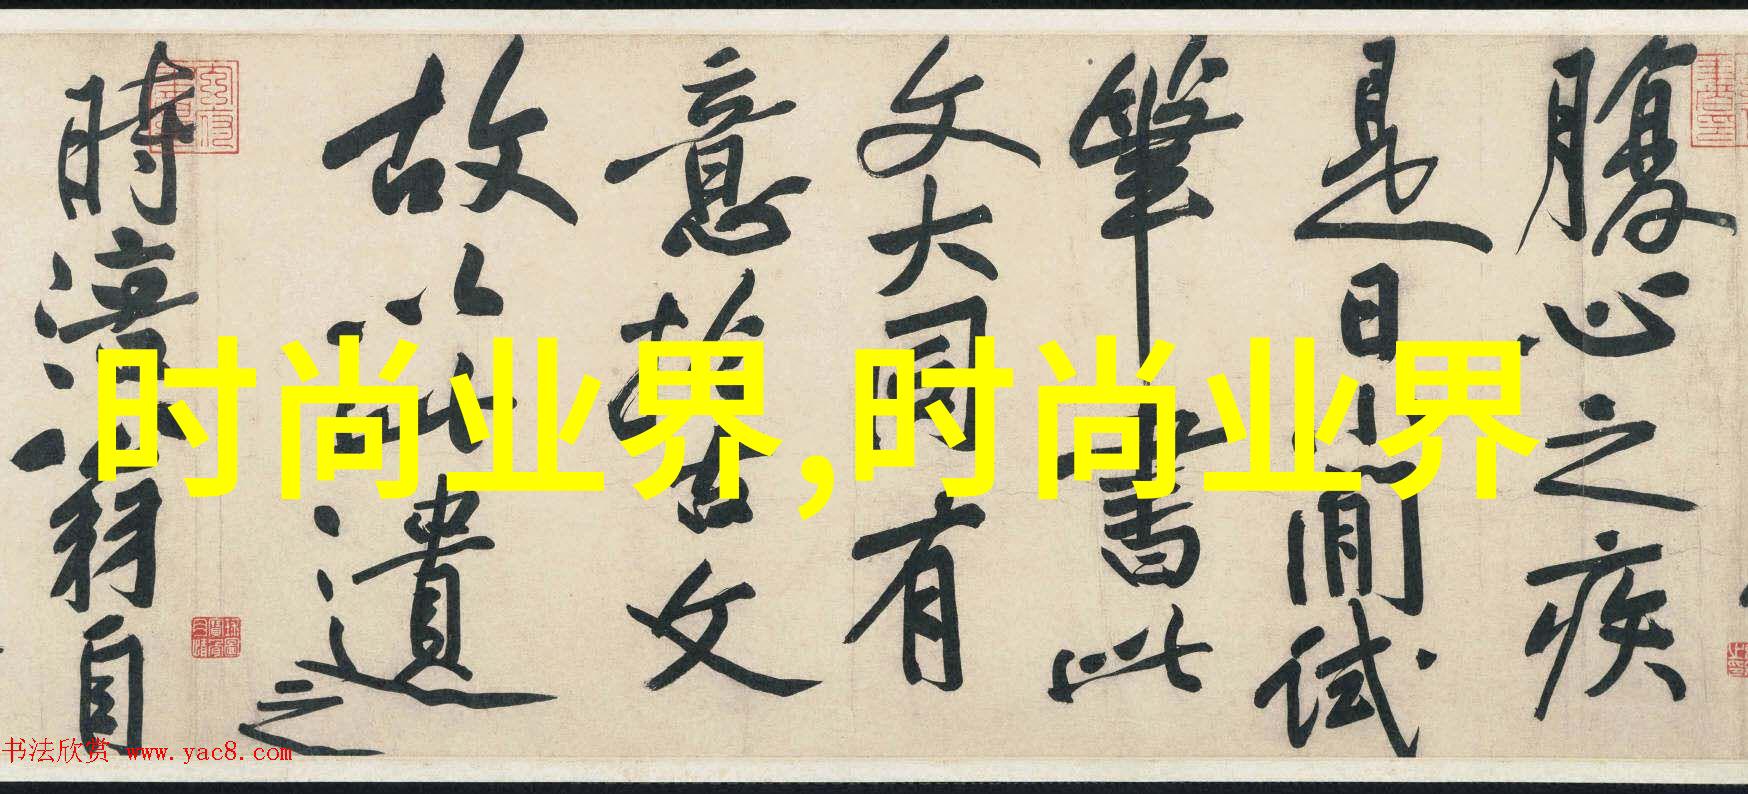 腹心之疾
是日小閒試
筆書此
文大同有
意於古文
故以此遺之
時涪翁自
时尚业界,时尚业界
书法欣赏 www.yac8.com